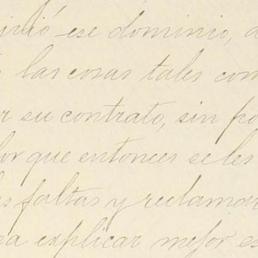 ese dominio,
las cosas tales com
su contrato, sin po
que entonces se les
faltas y reclamar
explicar mejor es